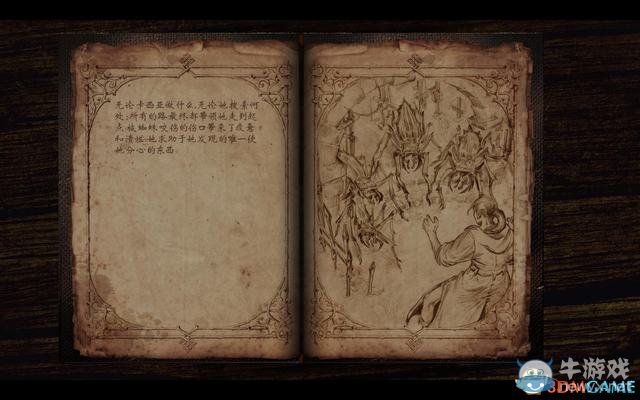 无论卡西亚做什么,无论她搜索何
处;所有的路最终都带领她走到起
点,被蜘蛛咬伤的伤口带来了疲惫
和 她求助于她发现的唯一使
她分心的东西.
牛游戏
3DMGAME